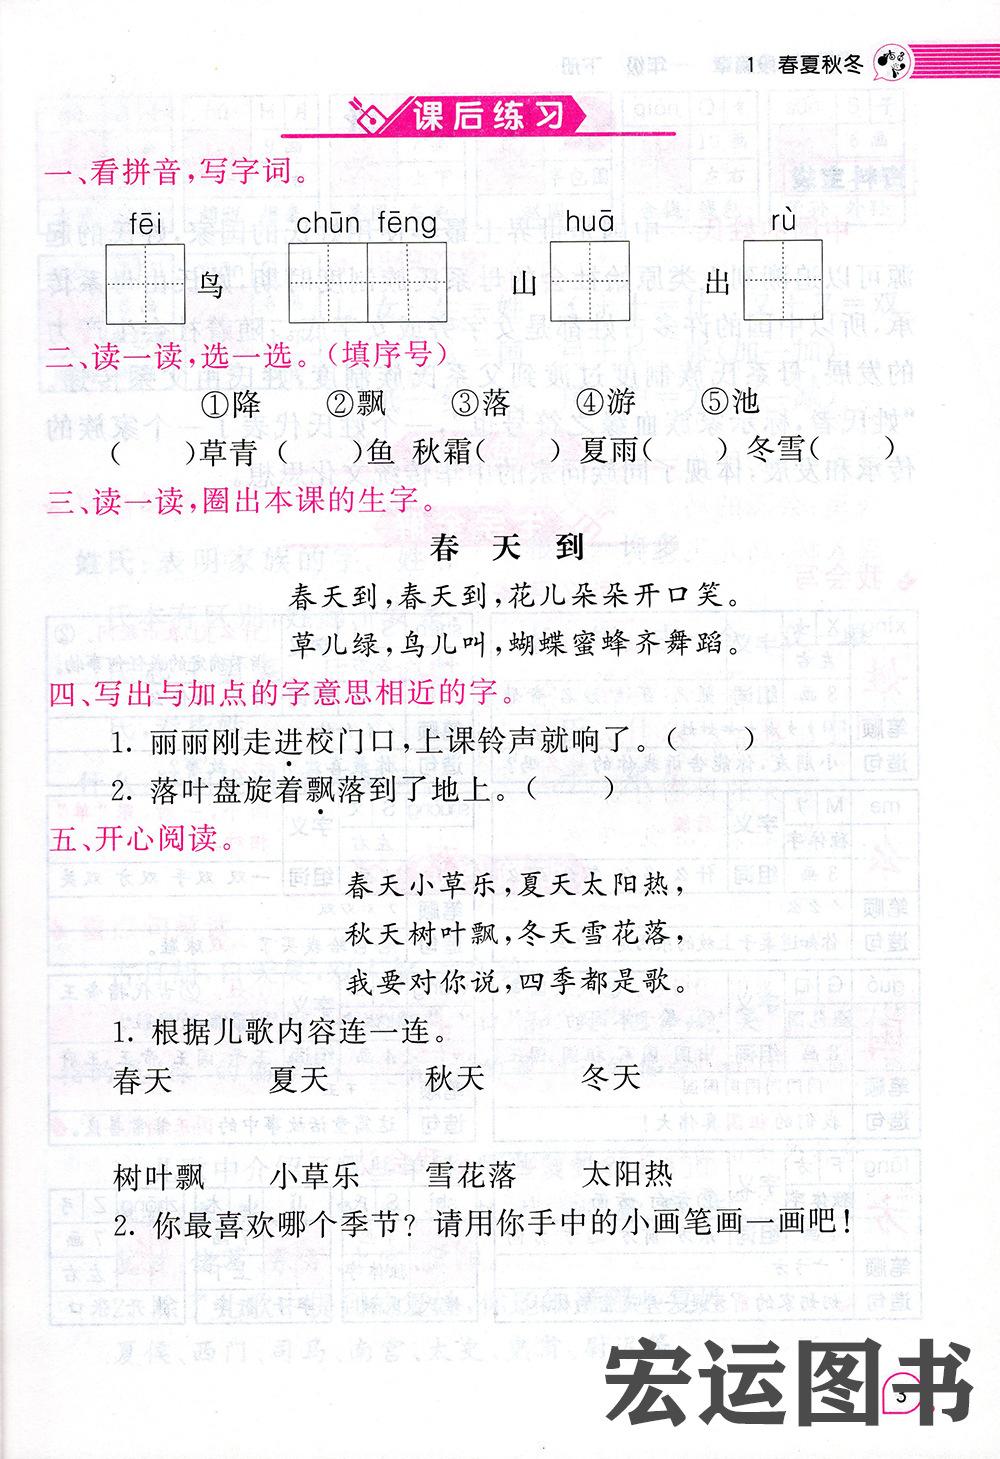 1 春夏秋冬
课后练习
一、看拼音,写字词。
fēi chūn fēng huā rù
鸟 山 出
二、读一读,选一选。(填序号)
①降 ②飘 ③落 ④游 ⑤池
( )草青 ( )鱼 秋霜( ) 夏雨( ) 冬雪( )
三、读一读,圈出本课的生字。
春 天 到
春天到,春天到,花儿朵朵开口笑。
草儿绿,鸟儿叫,蝴蝶蜜蜂齐舞蹈。
四、写出与加点的字意思相近的字。
1. 丽丽刚走进校门口,上课铃声就响了。( )
2. 落叶盘旋着飘落到了地上。( )
五、开心阅读。
春天小草乐,夏天太阳热,
秋天树叶飘,冬天雪花落,
我要对你说,四季都是歌。
1. 根据儿歌内容连一连。
春天 夏天 秋天 冬天
树叶飘 小草乐 雪花落 太阳热
2. 你最喜欢哪个季节? 请用你手中的小画笔画一画吧!
宏运图书